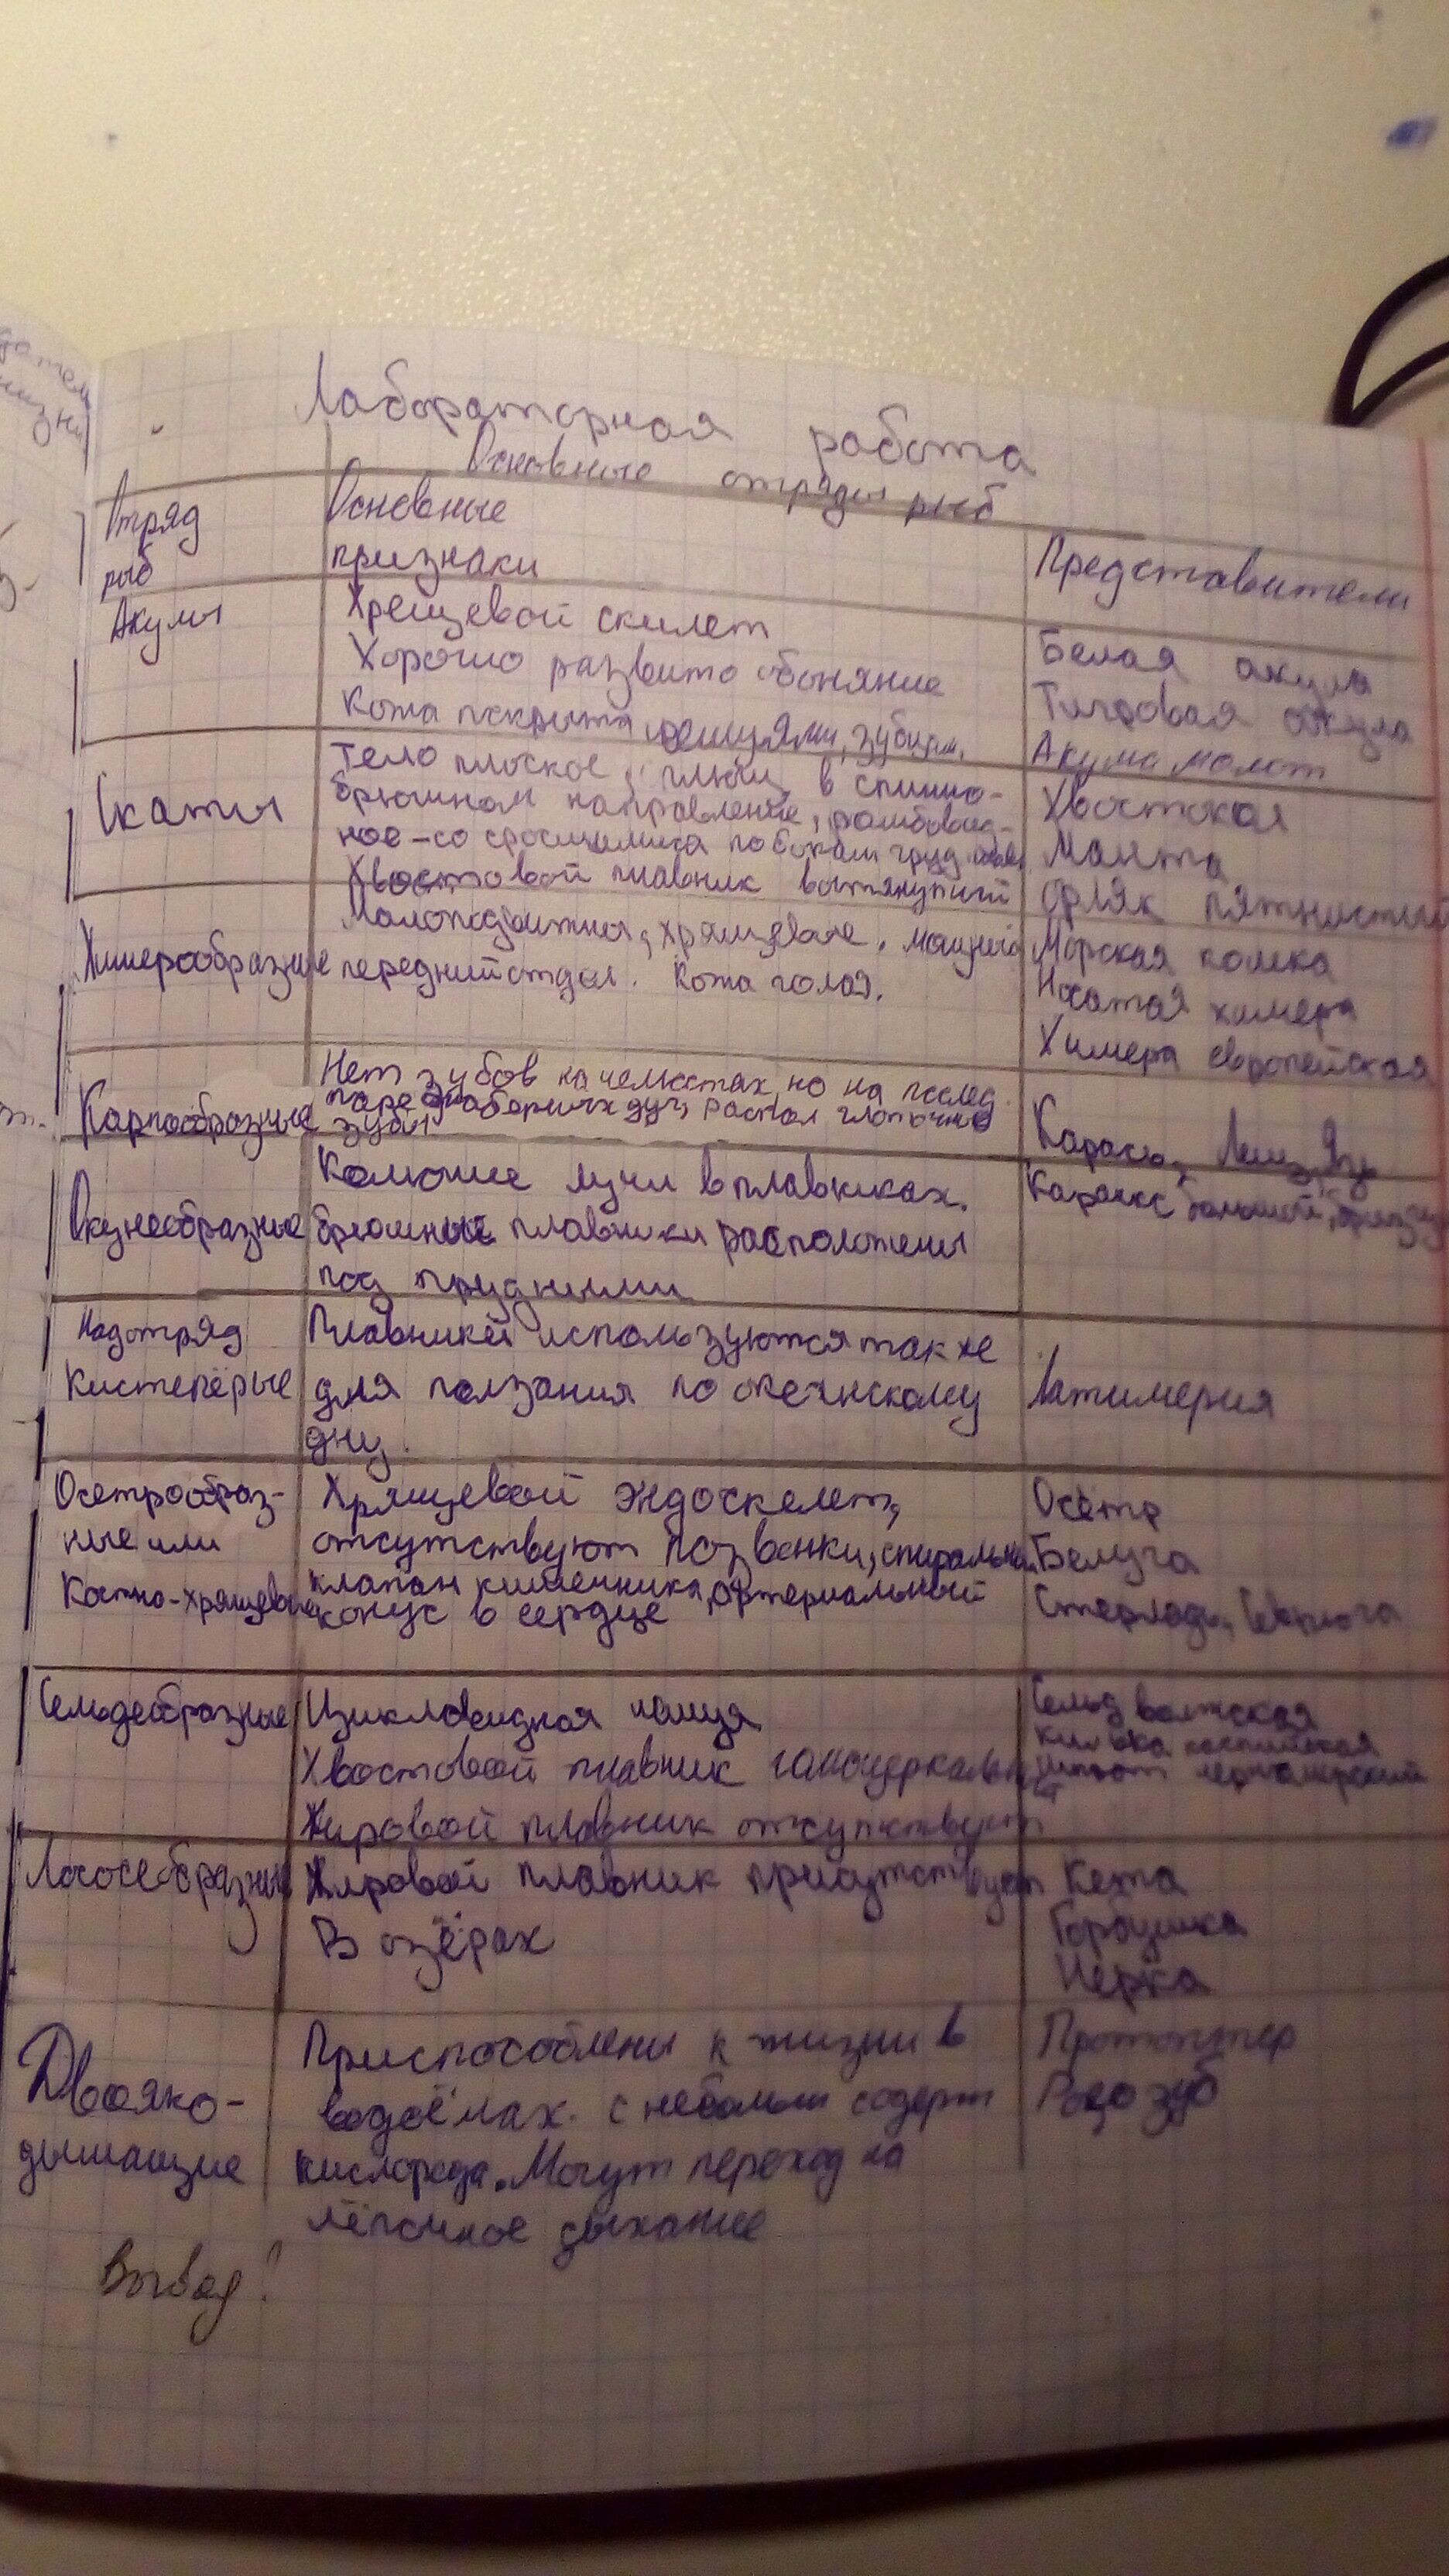 Лабораторная работа
Основные отряды рыб
Отряд
рыб
Основные
признаки
Представители
Акулы
Хрещевой скилет
Хорошо развито обоняние
Кожа покрыта зубцам.
Белая акула
Тигровая акула
Акула молот
Скаты
Тело плоское, в спинно-
брюшном направление, ромбовид-
ное-со сросшимися по бокам груд.
Хвостовой плавник вытянутый
Хвостокол
Манта
Орляк пятнистый
Химерообразные
Малоподвижны, хрящевые. мощный
передний отдел. Кожа голая.
Морская кошка
Носатая химера
Химера европейская
Карпообразные
Нет зубов на челюстях, но на послед.
паре жаберных дуг, распол глоточные
зубы
Карась, Лещ, Язь
Окунеобразные
Колючие лучи в плавниках.
брюшные плавники расположены
под грудными
Каранкс большой,
Надотряд
Кистепёрые
Плавники используются также
для ползания по океанскому
дну.
Латимерия
Осетрообраз-
ные или
Костно-хрящевые
Хрящевой эндоскелет,
отсутствуют позвонки, спиральный
клапан кишечника, артериальный
конус в сердце
Осётр
Белуга
Стерлядь, Севрюга
Сельдеобразные
Цикловидная чешуя
Хвостовой плавник гомоцеркальный
Жировой плавник отсутствует
Сельд волжская
килька каспийская
шпрот черноморский
Лососеобразные
Жировой плавник присутствует
В озёрах
Кета
Горбушка
Нерка
Двояко-
дышащие
Приспособлены к жизни в
водоёмах. с небольш содерж
кислорода. Могут переход на
лёгочное дыхание
Протоптер
Рогозуб
Вывод!